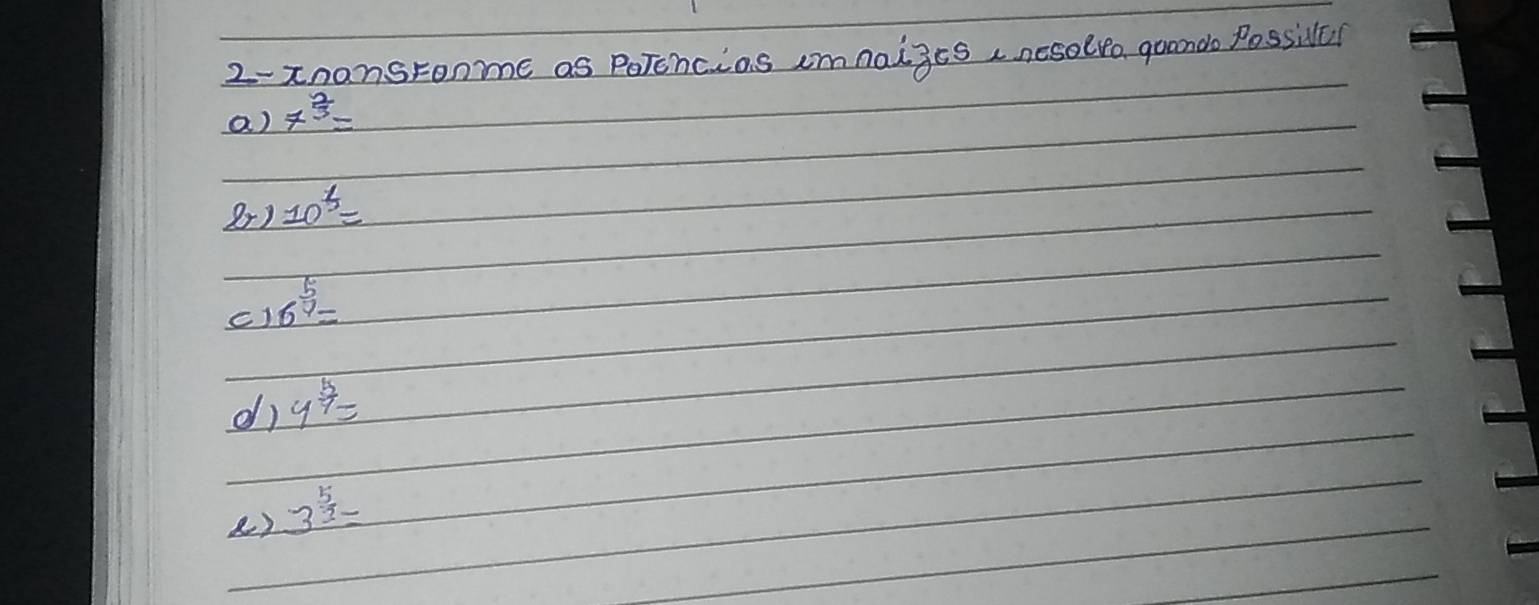 2-Transforme as Potencias em raizes e resolva quando Possivel
a) 7^2/3=
b) 10^1/5=
c) 6^5/7=
d) 4^5/7=
e) 3^5/2=